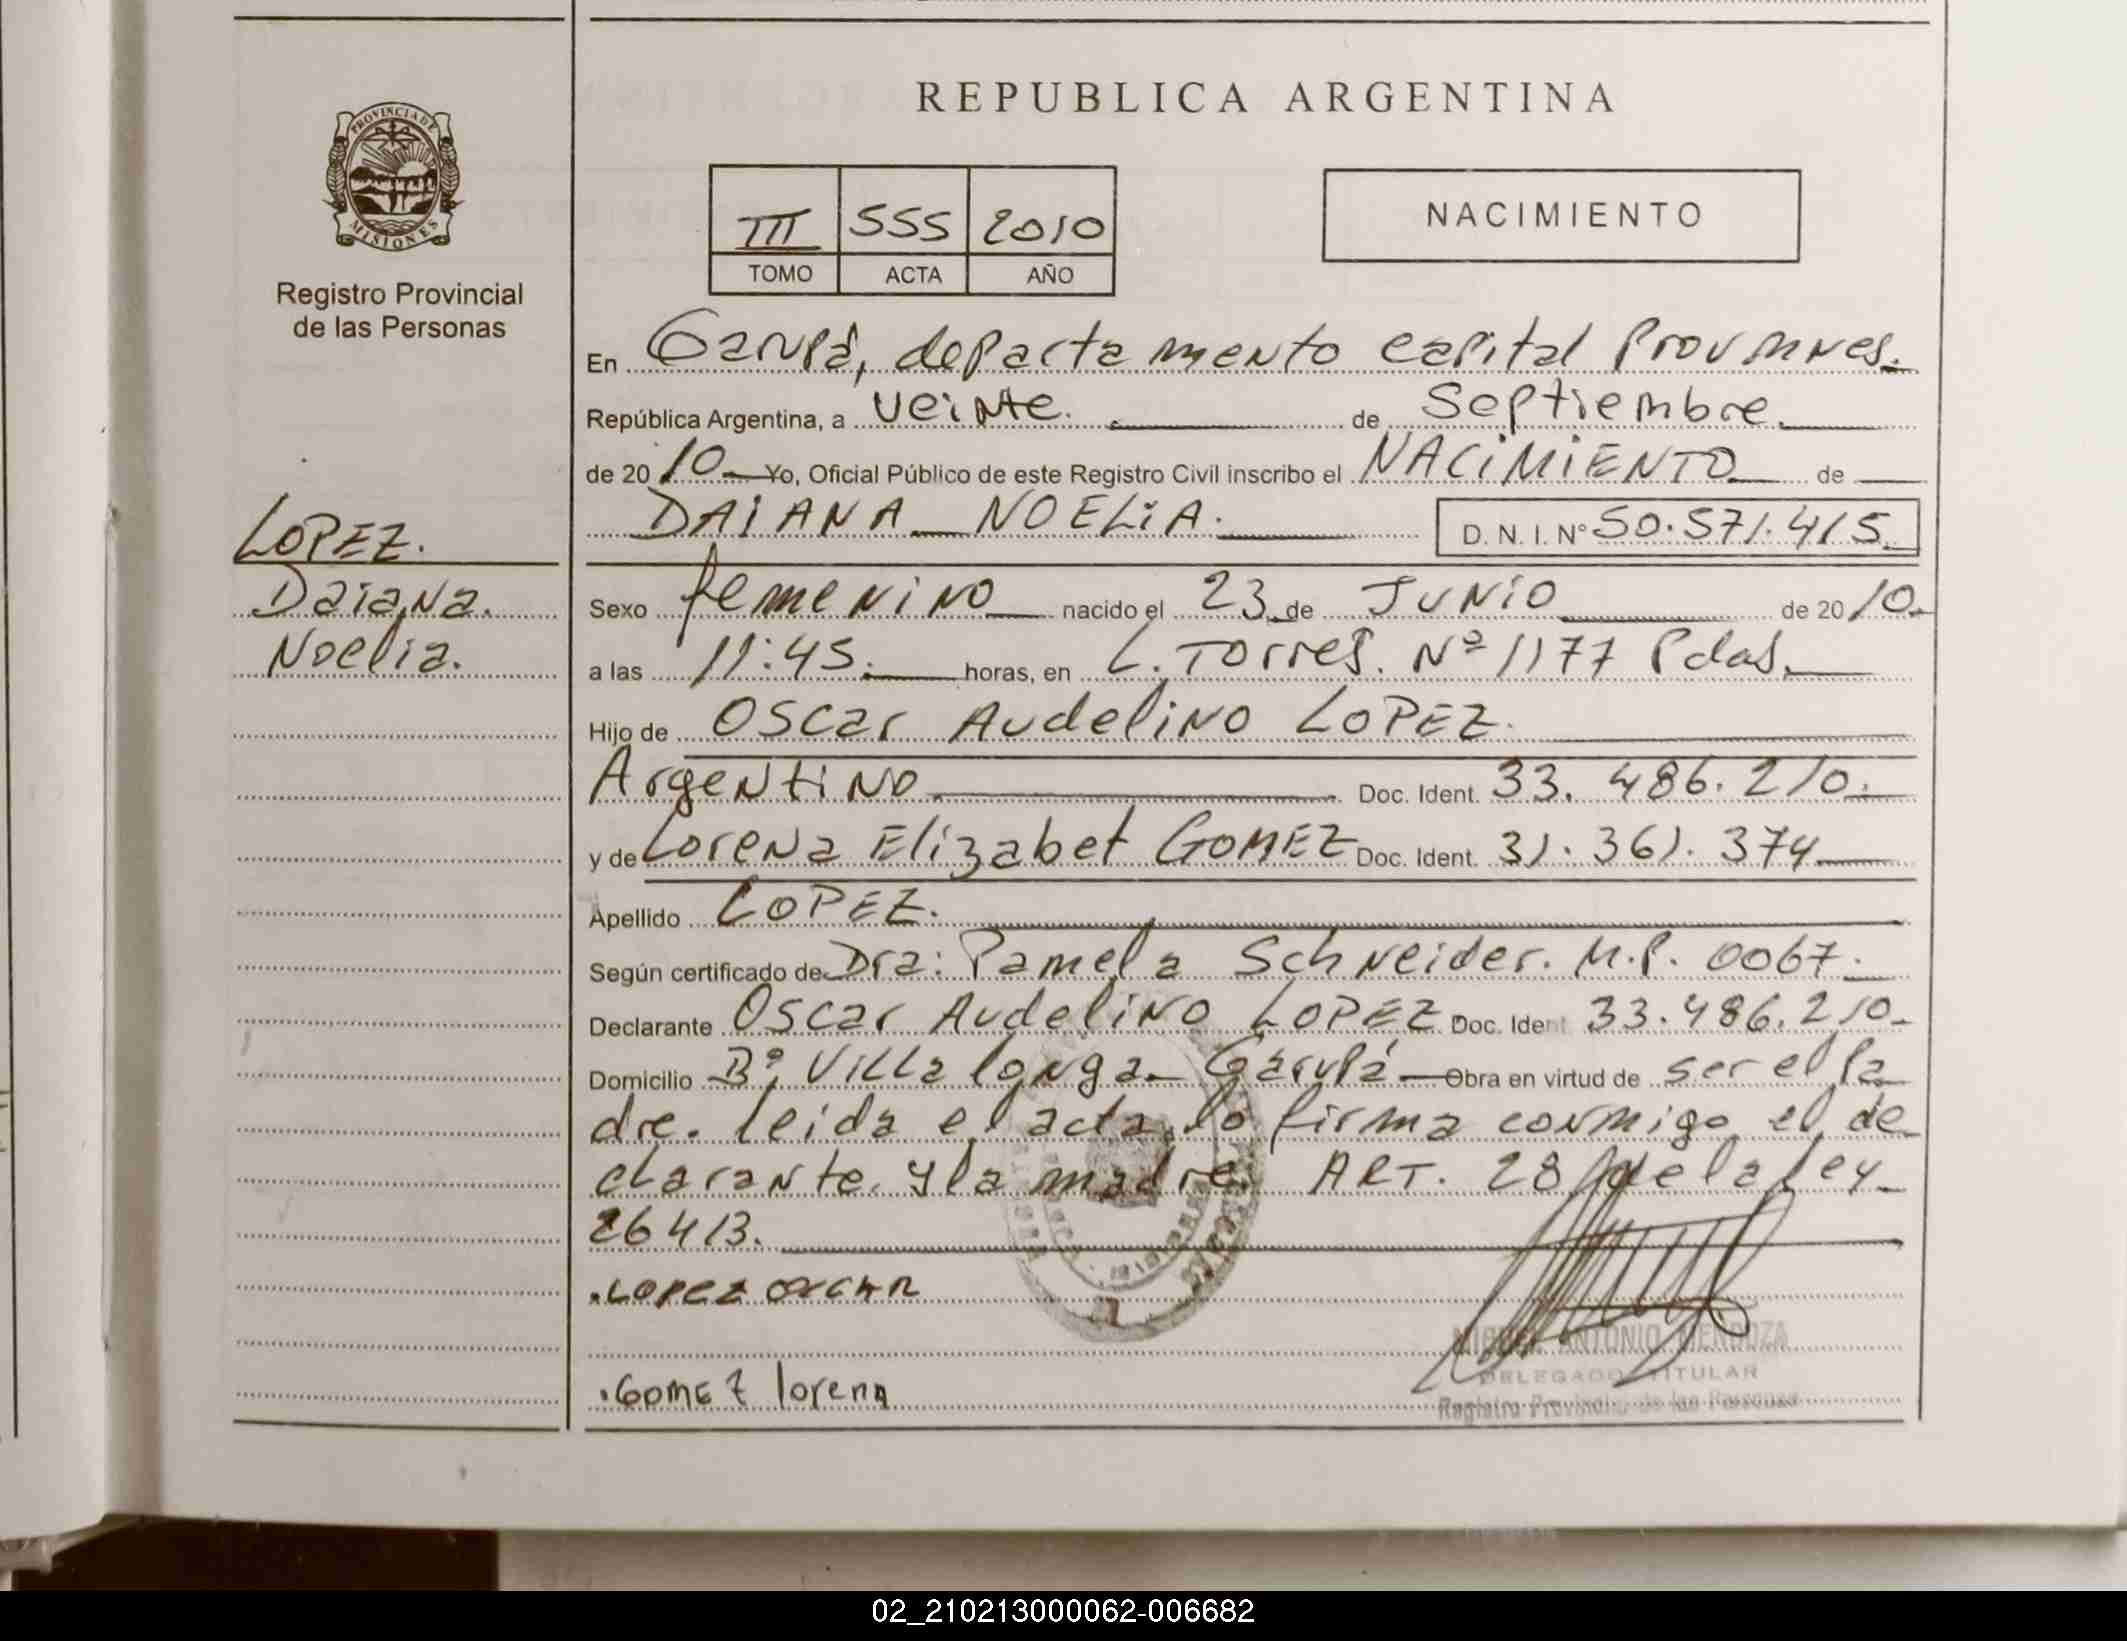 REPUBLICA ARGENTINA
PROVINCIA DE
MISIONES
Registro Provincial
de las Personas
III 555 2010
TOMO ACTA AÑO
NACIMIENTO
En Garupá, departamento capital Prov Mnes.
República Argentina, a veinte. de Septiembre
de 20 10 Yo, Oficial Público de este Registro Civil inscribo el NACIMIENTO de
DAIANA NOELIA. D. N. I. N° 50.571.415
LOPEZ.
Daiana.
Noelia.
Sexo femenino nacido el 23 de JUNIO de 20 10.
a las 11:45. horas, en L. Torres. Nº 1177 Pdas.
Hijo de Oscar Audelino LOPEZ.
Argentino Doc. Ident. 33.486.210.
y de Lorena Elizabet GOMEZ Doc. Ident. 31.361.374
Apellido LOPEZ.
Según certificado de Dra: Pamela Schneider. M.P. 0067.
Declarante Oscar Audelino LOPEZ Doc. Ident 33.486.210.
Domicilio Bº, Villa longa. Garupá Obra en virtud de ser el pa
dre. leida el acta, lo firma conmigo el de
clarante y la madre. ART. 28 de la ley
26413.
.LOPEZ OSCAR
.Gomez lorena
MIGUEL ANTONIO MENDOZA
DELEGADO TITULAR
Registro Provincial de las Personas
02_210213000062-006682